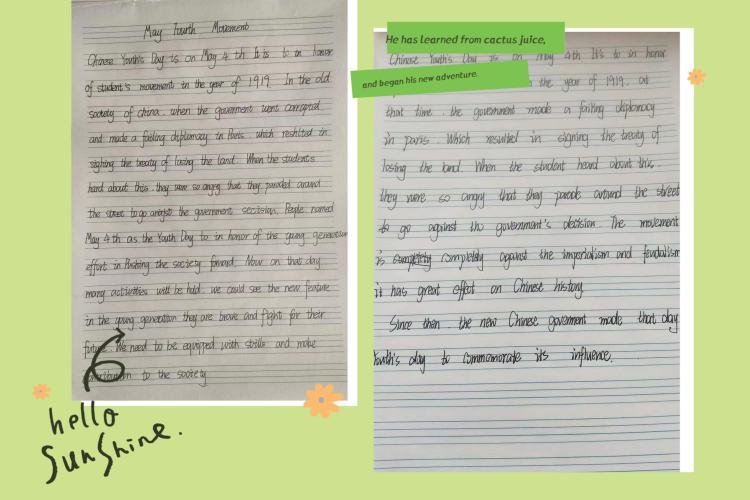 May Fourth Movement
Chinese Youth's Day is on May 4 th It is to in honor
of student's movement in the year of 1919. In the old
society of china. when the government went corrupted
and made a failing diplomacy in Paris which reslited in
signing the treaty of losing the land. When the students
hard about this. they were so angry that they paraded around
the street to go against the government secision. People named
May 4th as the Youth Day to in honor of the young generation
effort in Pushing the society forward. Now on that day
many activities will be hold. we could see the new feature
in the young generation they are brave and fight for their
future. We need to be equipped with skills and make
contribution to the society
hello
Sunshine.
He has learned from cactus juice,
and began his new adventure.
Chinese Youth's Day is on May 4th It's to in honor
the year of 1919. at
that time. the government made a failing diplomacy
in paris. Which resulted in signing the treaty of
losing the land. When the student heard about this.
they were so angry that they parade around the street
to go against the government's decision. The movement
is completely against the imperialism and feudalism
it has great effect on Chinese history
Since then. the new Chinese goverment made that day
Youth's day to commomorate its influence.